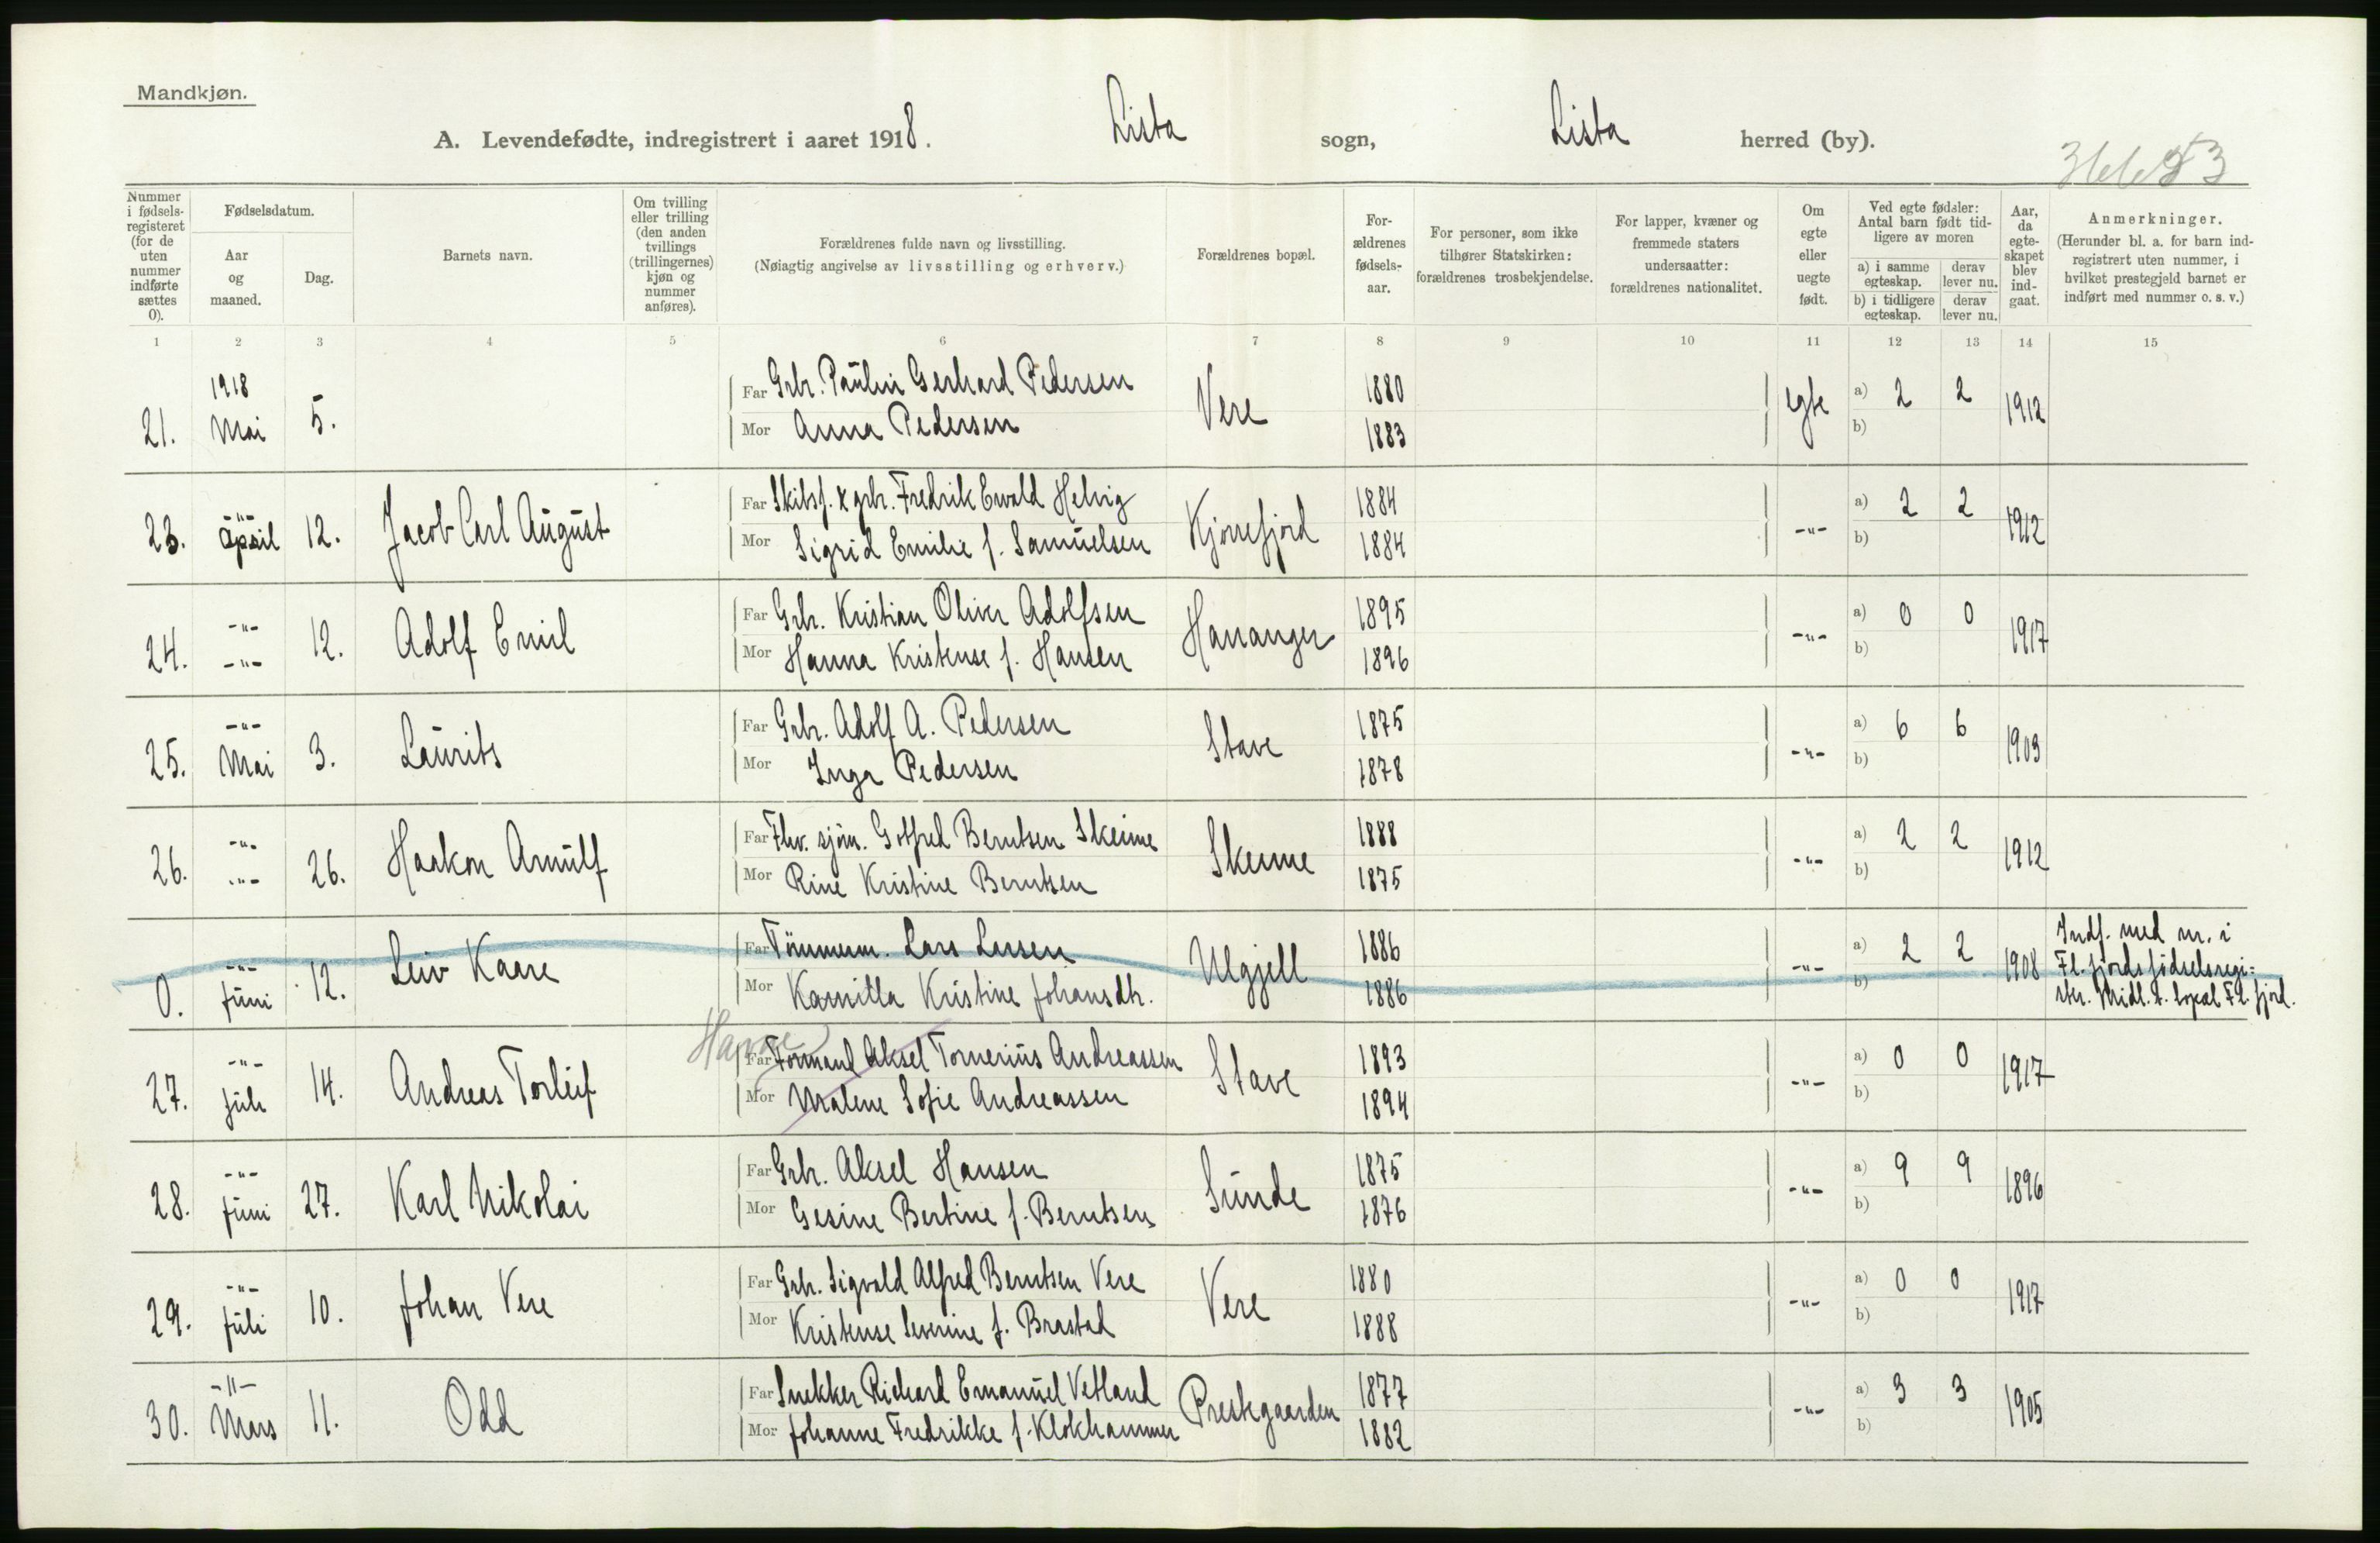 Mandkjøn.
A. Levendefødte, indregistrert i aaret 1918. Lista sogn, Lista herred (by).
Nummer i fødsels-registeret (for de uten nummer indførte sættes 0).
Fødselsdatum.
Aar og maaned.
Dag.
Barnets navn.
Om tvilling eller trilling (den anden tvillings (trillingernes) kjøn og nummer anføres).
Forældrenes fulde navn og livsstilling.
(Nøiagtig angivelse av livsstilling og erhverv.)
Forældrenes bopæl.
For-ældrenes fødsels-aar.
For personer, som ikke tilhører Statskirken: forældrenes trosbekjendelse.
For lapper, kvæner og fremmede staters undersaatter: forældrenes nationalitet.
Om egte eller uegte født.
Ved egte fødsler: Antal barn født tid-ligere av moren
a) i samme egteskap.
derav lever nu.
b) i tidligere egteskap.
derav lever nu.
Aar, da egte-skapet blev ind-gaat.
Anmerkninger.
(Herunder bl. a. for barn ind-registrert uten nummer, i hvilket prestegjeld barnet er indført med nummer o. s. v.)
1 2 3 4 5 6 7 8 9 10 11 12 13 14 15
21. 1918 Mai 5. Far Grbr. Paulin Gerhard Pedersen Vere 1880 egte a) 2 2 1912
Mor Anna Pedersen 1883 b)
23. -"- April 12. Jacob Carl August Far Skibsf. x grbr. Fredrik Ewald Helvig Kjørrefjord 1884 -"- a) 2 2 1912
Mor Sigrid Emilie f. Samuelsen 1884 b)
24. -"- -"- 12. Adolf Emil Far Grbr. Kristian Oliver Adolfsen Hananger 1895 -"- a) 0 0 1917
Mor Hanna Kristense f. Hansen 1896 b)
25. -"- Mai 3. Laurits Far Grbr. Adolf A. Pedersen Stave 1875 -"- a) 6 6 1903
Mor Inga Pedersen 1878 b)
26. -"- -"- 26. Haakon Arnulf Far Fhv. sjøm. Gotfred Berntsen Skeime Skeime 1888 -"- a) 2 2 1912
Mor Rine Kristine Berntsen 1875 b)
0. -"- Juni 12. Leiv Kaare Far Tømmerm. Lars Larsen Ulgjell 1886 -"- a) 2 2 1908 Indf. med nr. i
Mor Kamilla Kristine Johansdtr. 1886 b) Fl.fjords fødselsregi=
ster. Midl. t. bopæl Fl.fjord.
Havne
27. -"- Juli 14. Andreas Torleif Far Formand Aksel Tornerius Andreassen Stave 1893 -"- a) 0 0 1917
Mor Malene Sofie Andreassen 1894 b)
28. -"- Juni 27. Karl Nikolai Far Grbr. Aksel Hansen Sunde 1875 -"- a) 9 9 1896
Mor Gesine Bertine f. Berntsen 1876 b)
29. -"- Juli 10. Johan Vere Far Grbr. Sigvald Alfred Berntsen Vere Vere 1880 -"- a) 0 0 1917
Mor Kristense Severine f. Brastad 1888 b)
30. -"- Mars 11. Odd Far Snekker Richard Emanuel Vetland Prestegaarden 1877 -"- a) 3 3 1905
Mor Johanne Fredrikke f. Klokhammer 1882 b)